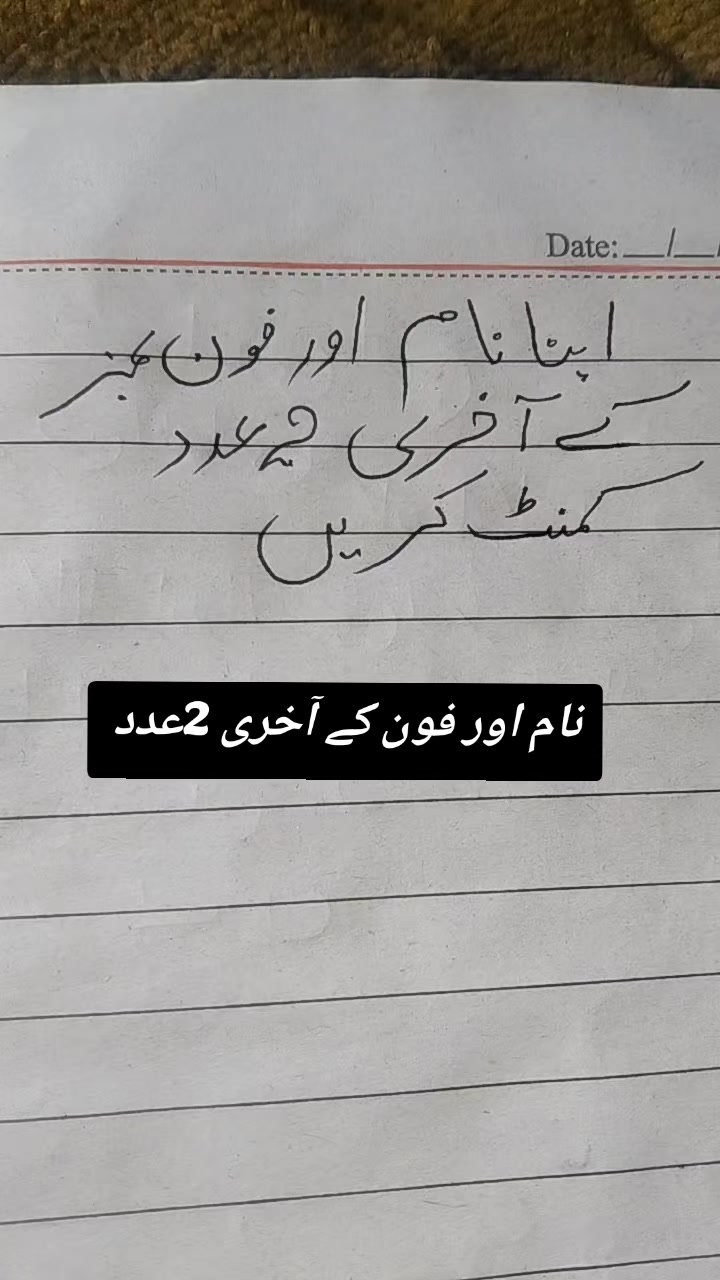 Date:__/__/
اپنا نام اور فون نمبر
کے آخری عدد
کمنٹ کریں
نام اور فون کے آخری 2عدد